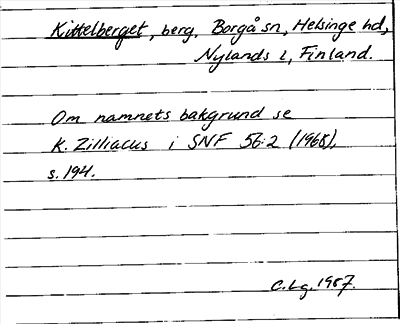 Kittelberget, berg, Borgå sn, Helsinge hd,
Nylands l, Finland.
Om namnets bakgrund se
K. Zilliacus i SNF 56:2 (1968),
s. 194.
C.Lg. 1987.